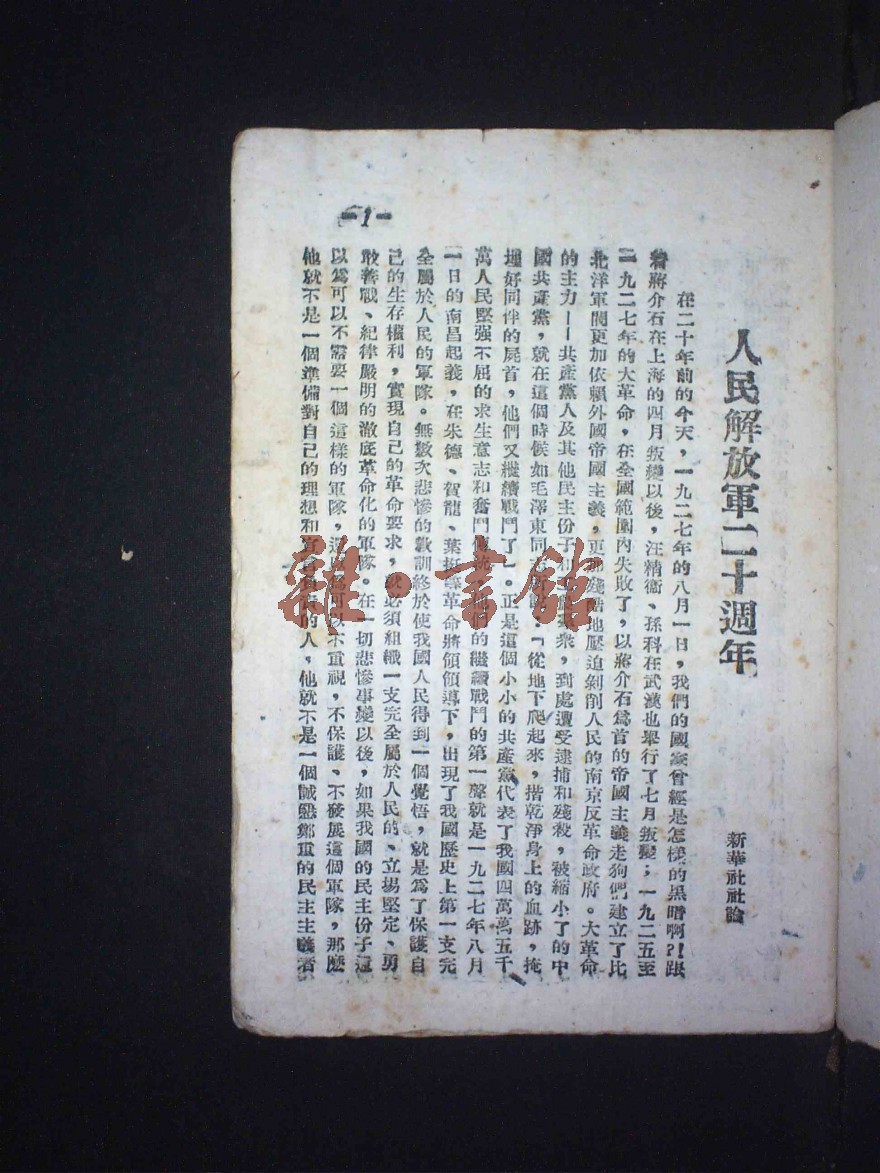 人民解放軍二十週年
新華社社論
在二十年前的今天，一九二七年的八月一日，我們的國家曾經是怎樣的黑暗啊？！跟
着蔣介石在上海的四月叛變以後，汪精衛、孫科在武漢也舉行了七月叛變；一九二五至
一九二七年的大革命，在全國範圍內失敗了，以蔣介石爲首的帝國主義走狗們建立了比
北洋軍閥更加依賴外國帝國主義，更 殘酷地壓迫剝削人民的南京反革命政府。大革命
的主力——共產黨人及其他民主份子和 衆，到處遭受逮捕和殘殺，被縮小了的中
國共產黨，就在這個時候如毛澤東同 「從地下爬起來，揩乾淨身上的血跡，掩
埋好同伴的屍首，他們又繼續戰鬥了」。正是這個小小的共產黨代表了我國四萬萬五千
萬人民堅强不屈的求生意志和奮鬥 的繼續戰鬥的第一聲就是一九二七年八月
一日的南昌起義，在朱德、賀龍、葉挺等革命將領領導下，出現了我國歷史上第一支完
全屬於人民的軍隊。無數次悲慘的教訓終於使我國人民得到一個覺悟，就是爲了保護自
己的生存權利，實現自己的革命要求，就必須組織一支完全屬於人民的、立場堅定、勇
敢善戰、紀律嚴明的澈底革命化的軍隊。在一切悲慘事變以後，如果我國的民主份子還
以爲可以不需要一個這樣的軍隊， 可以不重視，不保護、不發展這個軍隊，那麽
他就不是一個準備對自己的理想和 的人，他就不是一個誠懇鄭重的民主主義者
-1-
雜·書館